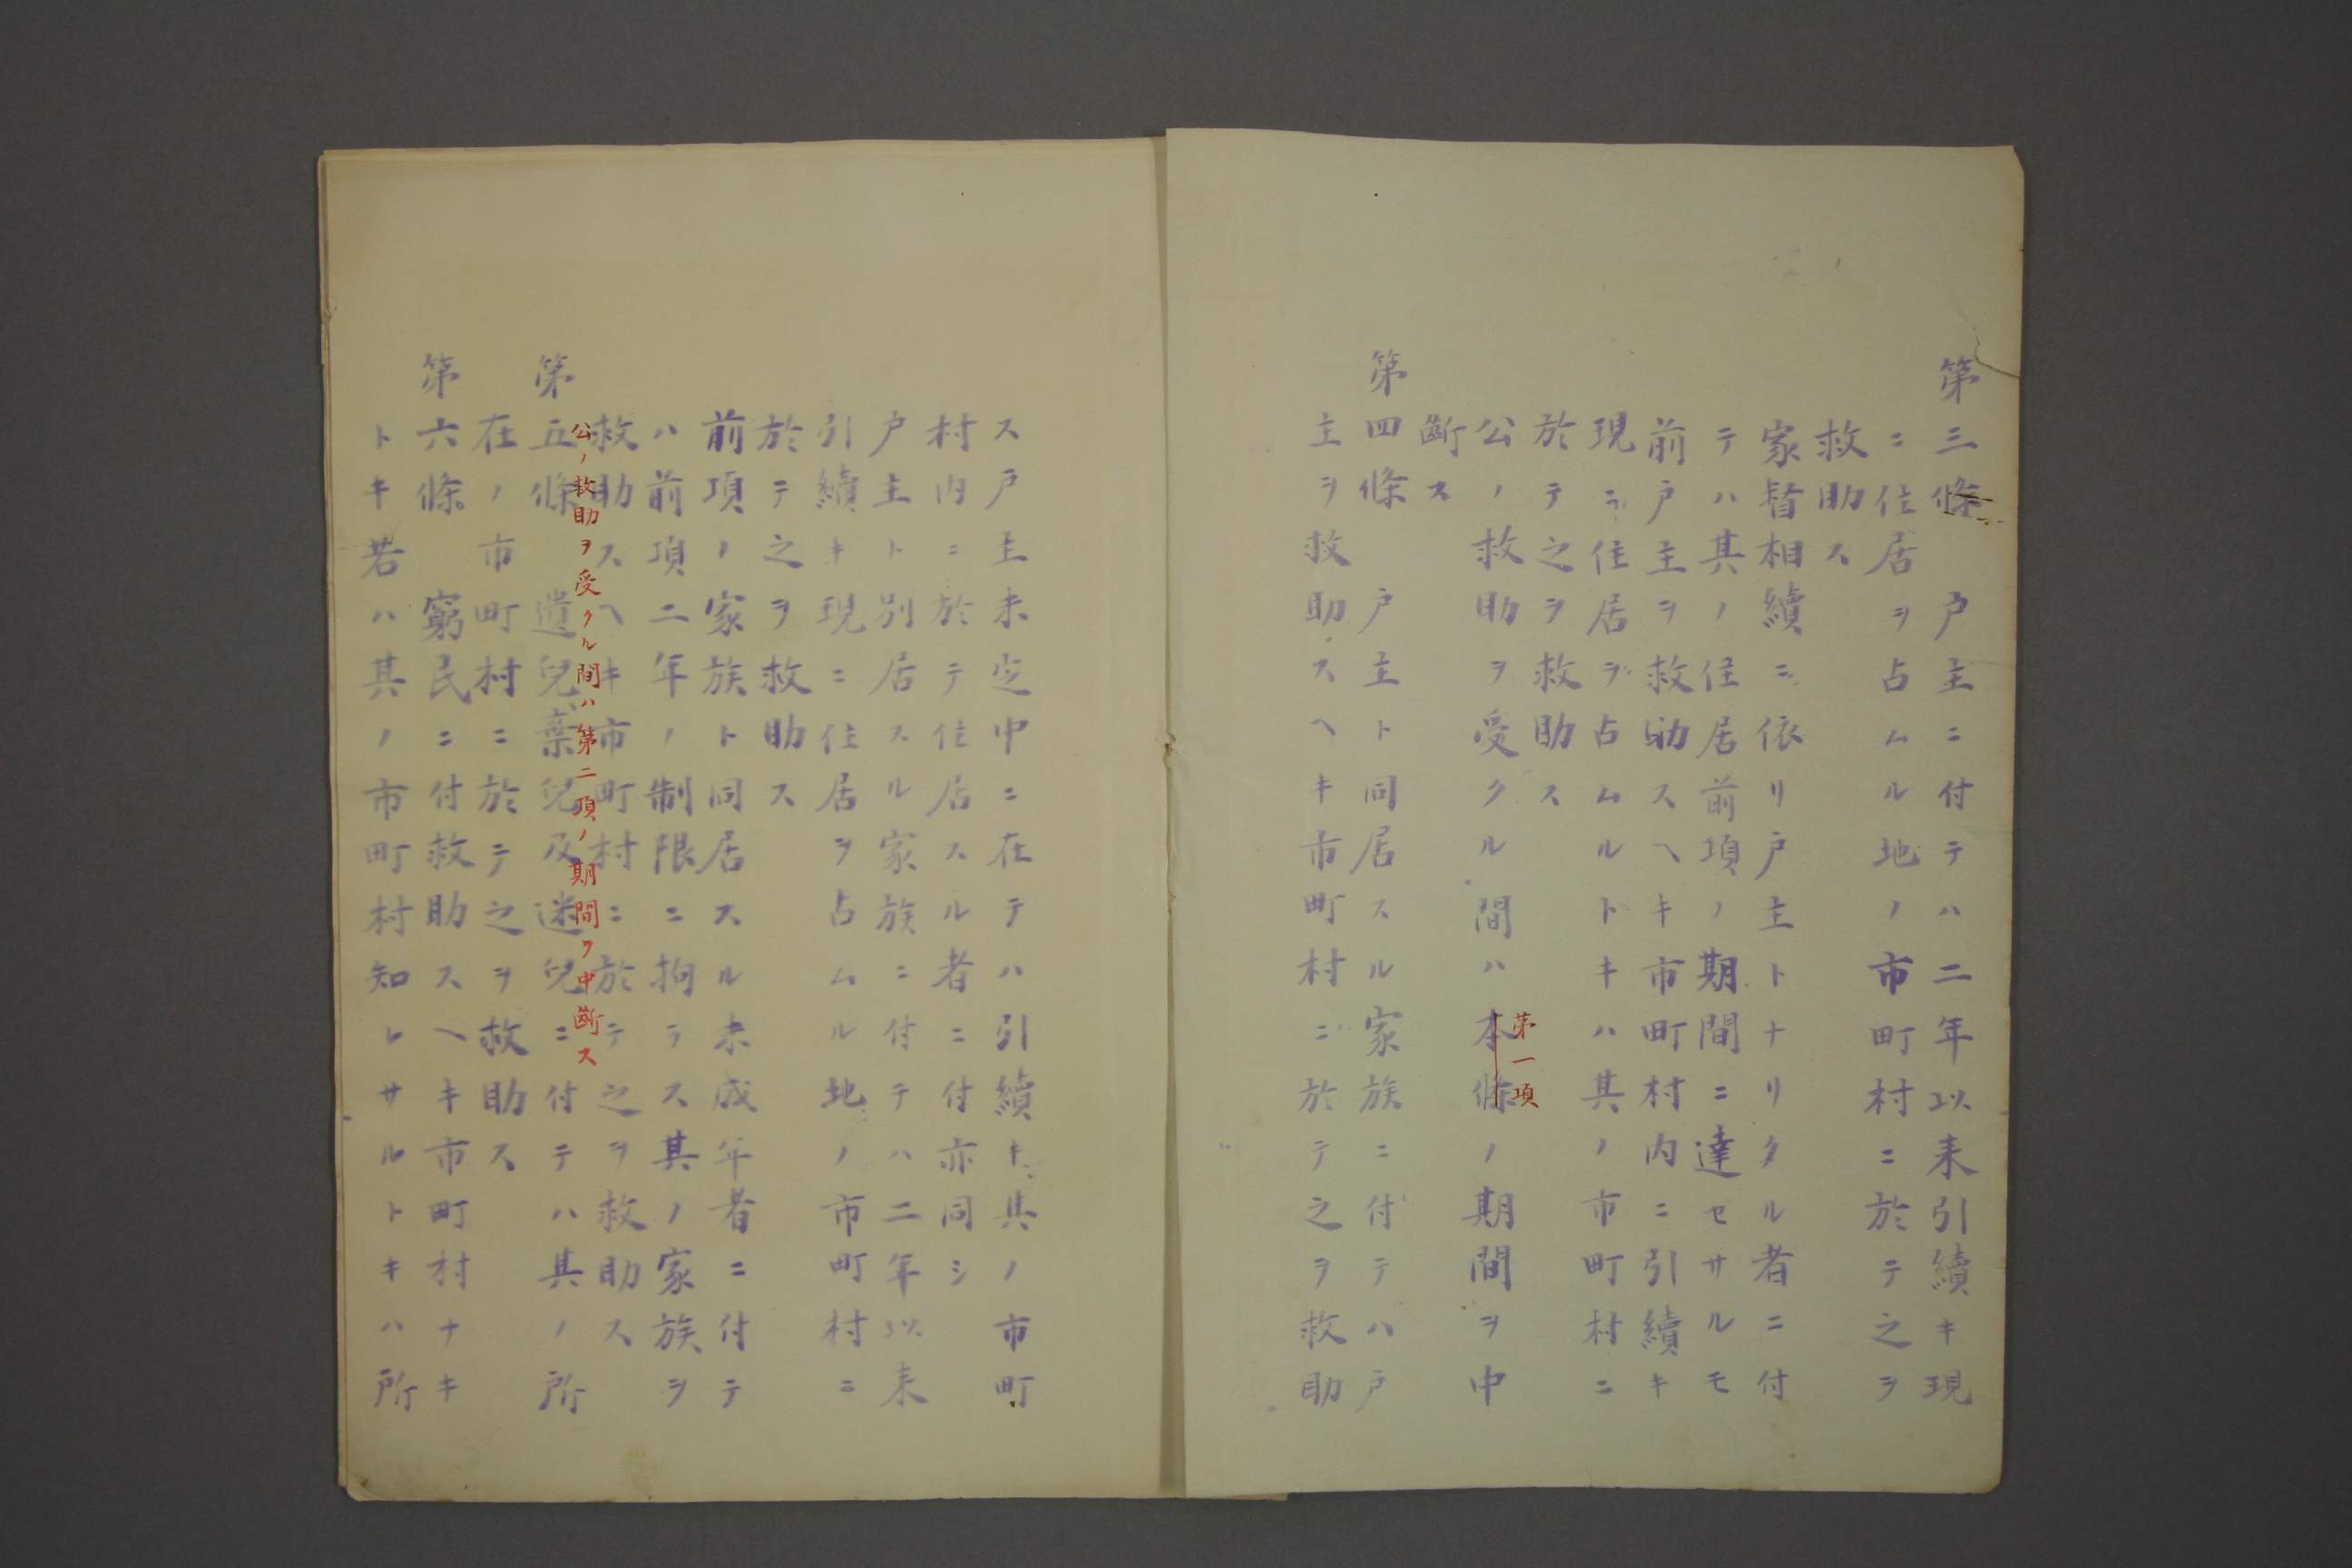 第三條　戸主ニ付テハ二年以来引續キ現
ニ住居ヲ占ムル地ノ市町村ニ於テ之ヲ
救助ス
家督相續ニ依リ戸主トナリタル者ニ付
テハ其ノ住居前項ノ期間ニ達セサルモ
前戸主ヲ救助スヘキ市町村内ニ引續キ
現ニ住居ヲ占ムルトキハ其ノ市町村ニ
於テ之ヲ救助ス
第一項
公ノ救助ヲ受クル間ハ本條ノ期間ヲ中
斷ス
第四條　戸主ト同居スル家族ニ付テハ戸
主ヲ救助スヘキ市町村ニ於テ之ヲ救助
ス戸主未定中ニ在テハ引續キ其ノ市町
村内ニ於テ住居スル者ニ付亦同シ
戸主ト別居スル家族ニ付テハ二年以来
引續キ現ニ住居ヲ占ムル地ノ市町村ニ
於テ之ヲ救助ス
前項ノ家族ト同居スル未成年者ニ付テ
ハ前項二年ノ制限ニ拘ラス其ノ家族ヲ
救助スヘキ市町村ニ於テ之ヲ救助ス
公ノ救助ヲ受クル間ハ第二項ノ期間ヲ中斷ス
第五條　遺兒棄兒及迷兒ニ付テハ其ノ所
在ノ市町村ニ於テ之ヲ救助ス
第六條　窮民ニ付救助スヘキ市町村ナキ
トキ若ハ其ノ市町村知レサルトキハ所